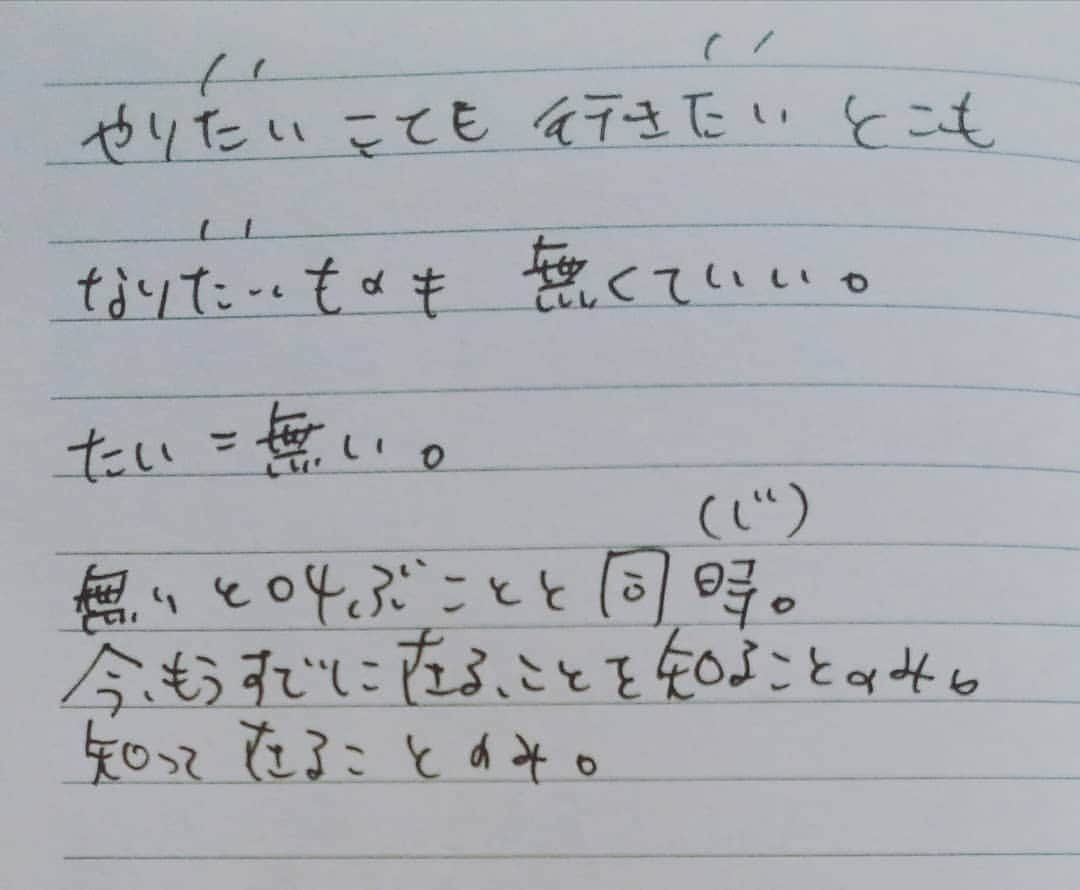 やりたいことも 行きたい とこも
なりたいものも 無くていい。
たい=無い。
(じ)
無いと叫ぶことと同時。
今、もうすでに在る、ことを知ることのみ。
知って在ることのみ。